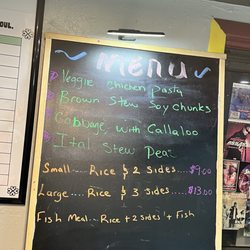 OUL.
MENU
Veggie chicken Pasta
Brown Stew Soy Chunks
Cabbage with Callaloo
Ital Stew Peas
Small.... Rice & 2 Sides.....$9.00
Large..... Rice & 3 Sides....$13.00
Fish Meal... Rice + 2 sides + Fish